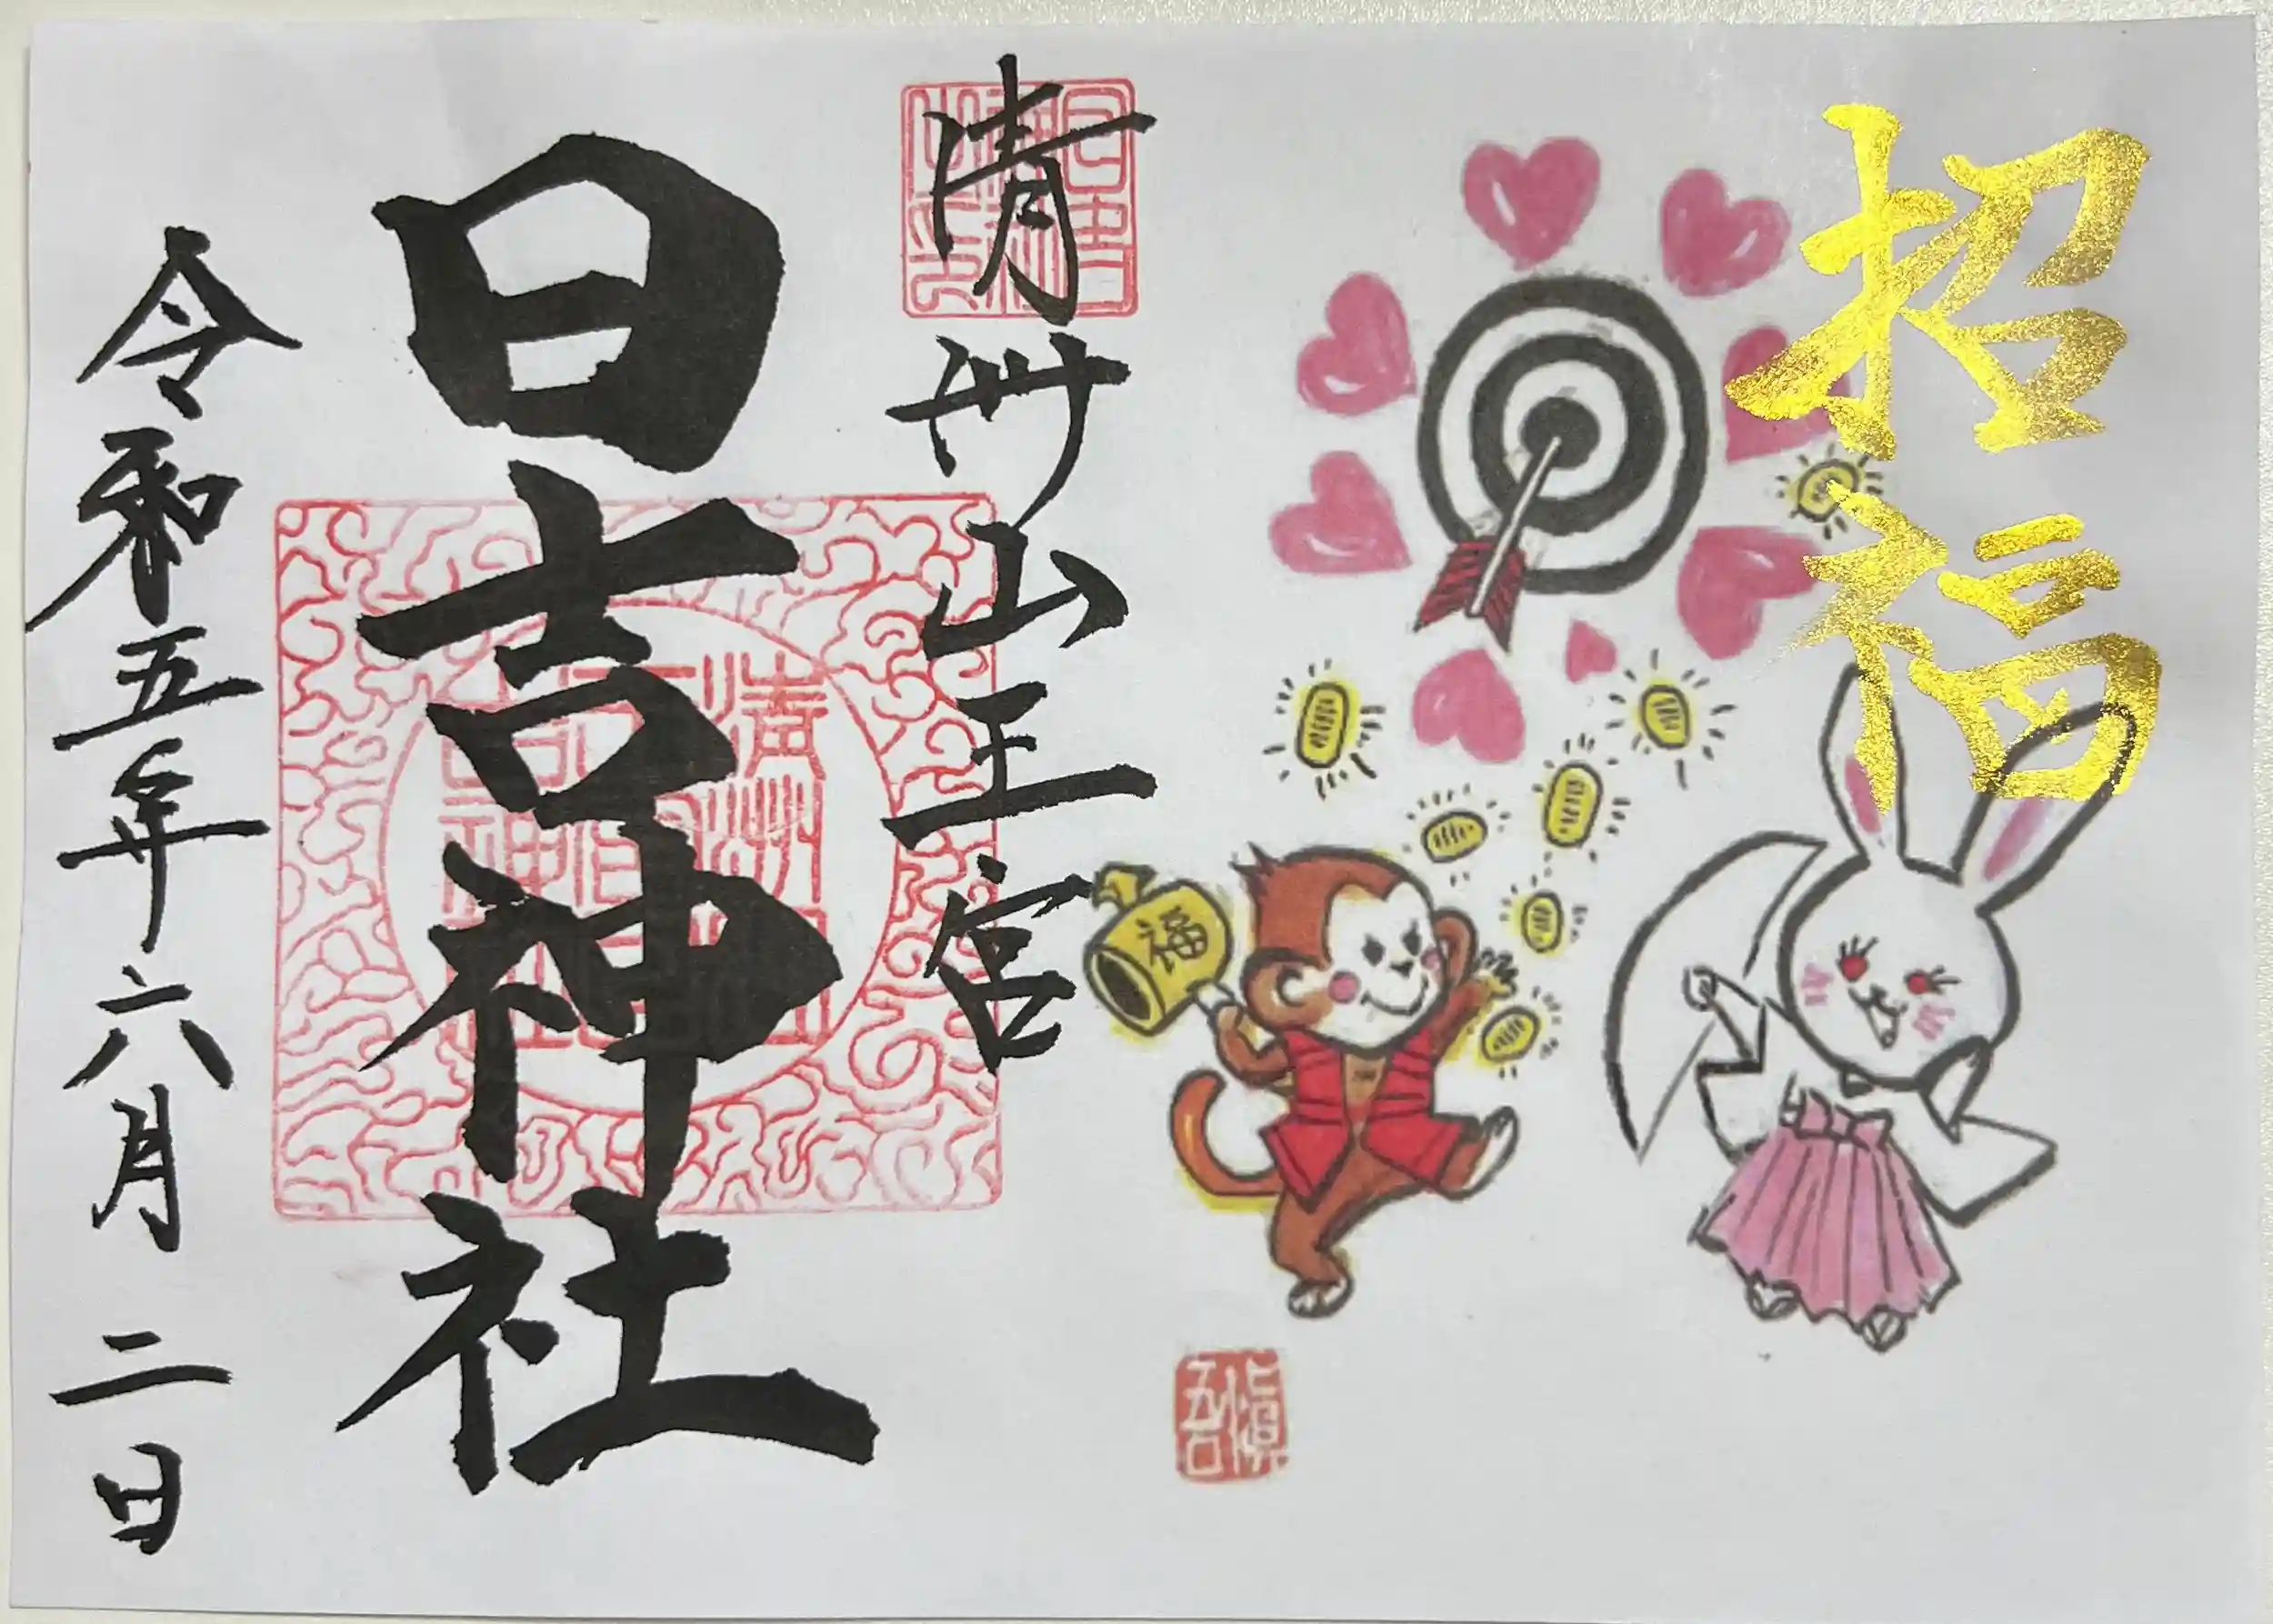 招福
福
清洲山王宮
日吉神社
令和五年六月二日